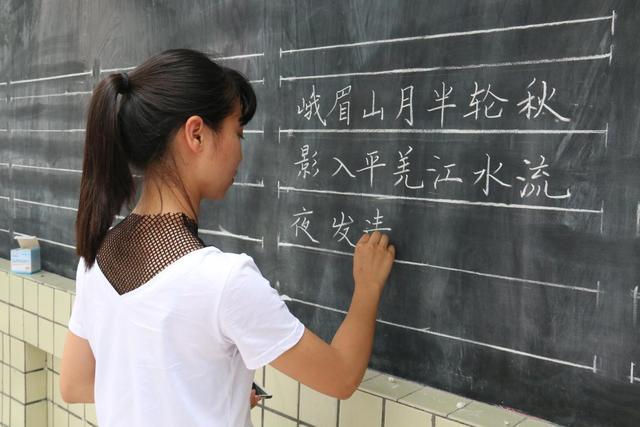 峨眉山月半轮秋
影入平羌江水流
夜发